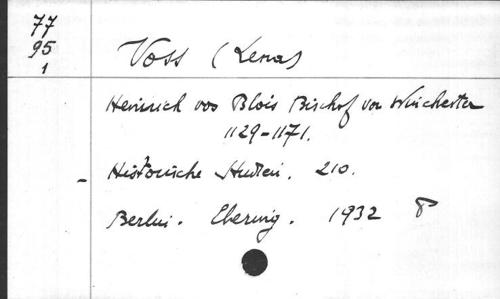 77
95
1
Voss (Lena)
Heinrich von Blois Bischof von Winchester
1129-1171.
- Historische Studien. 210.
Berlin. Ebering. 1932 8